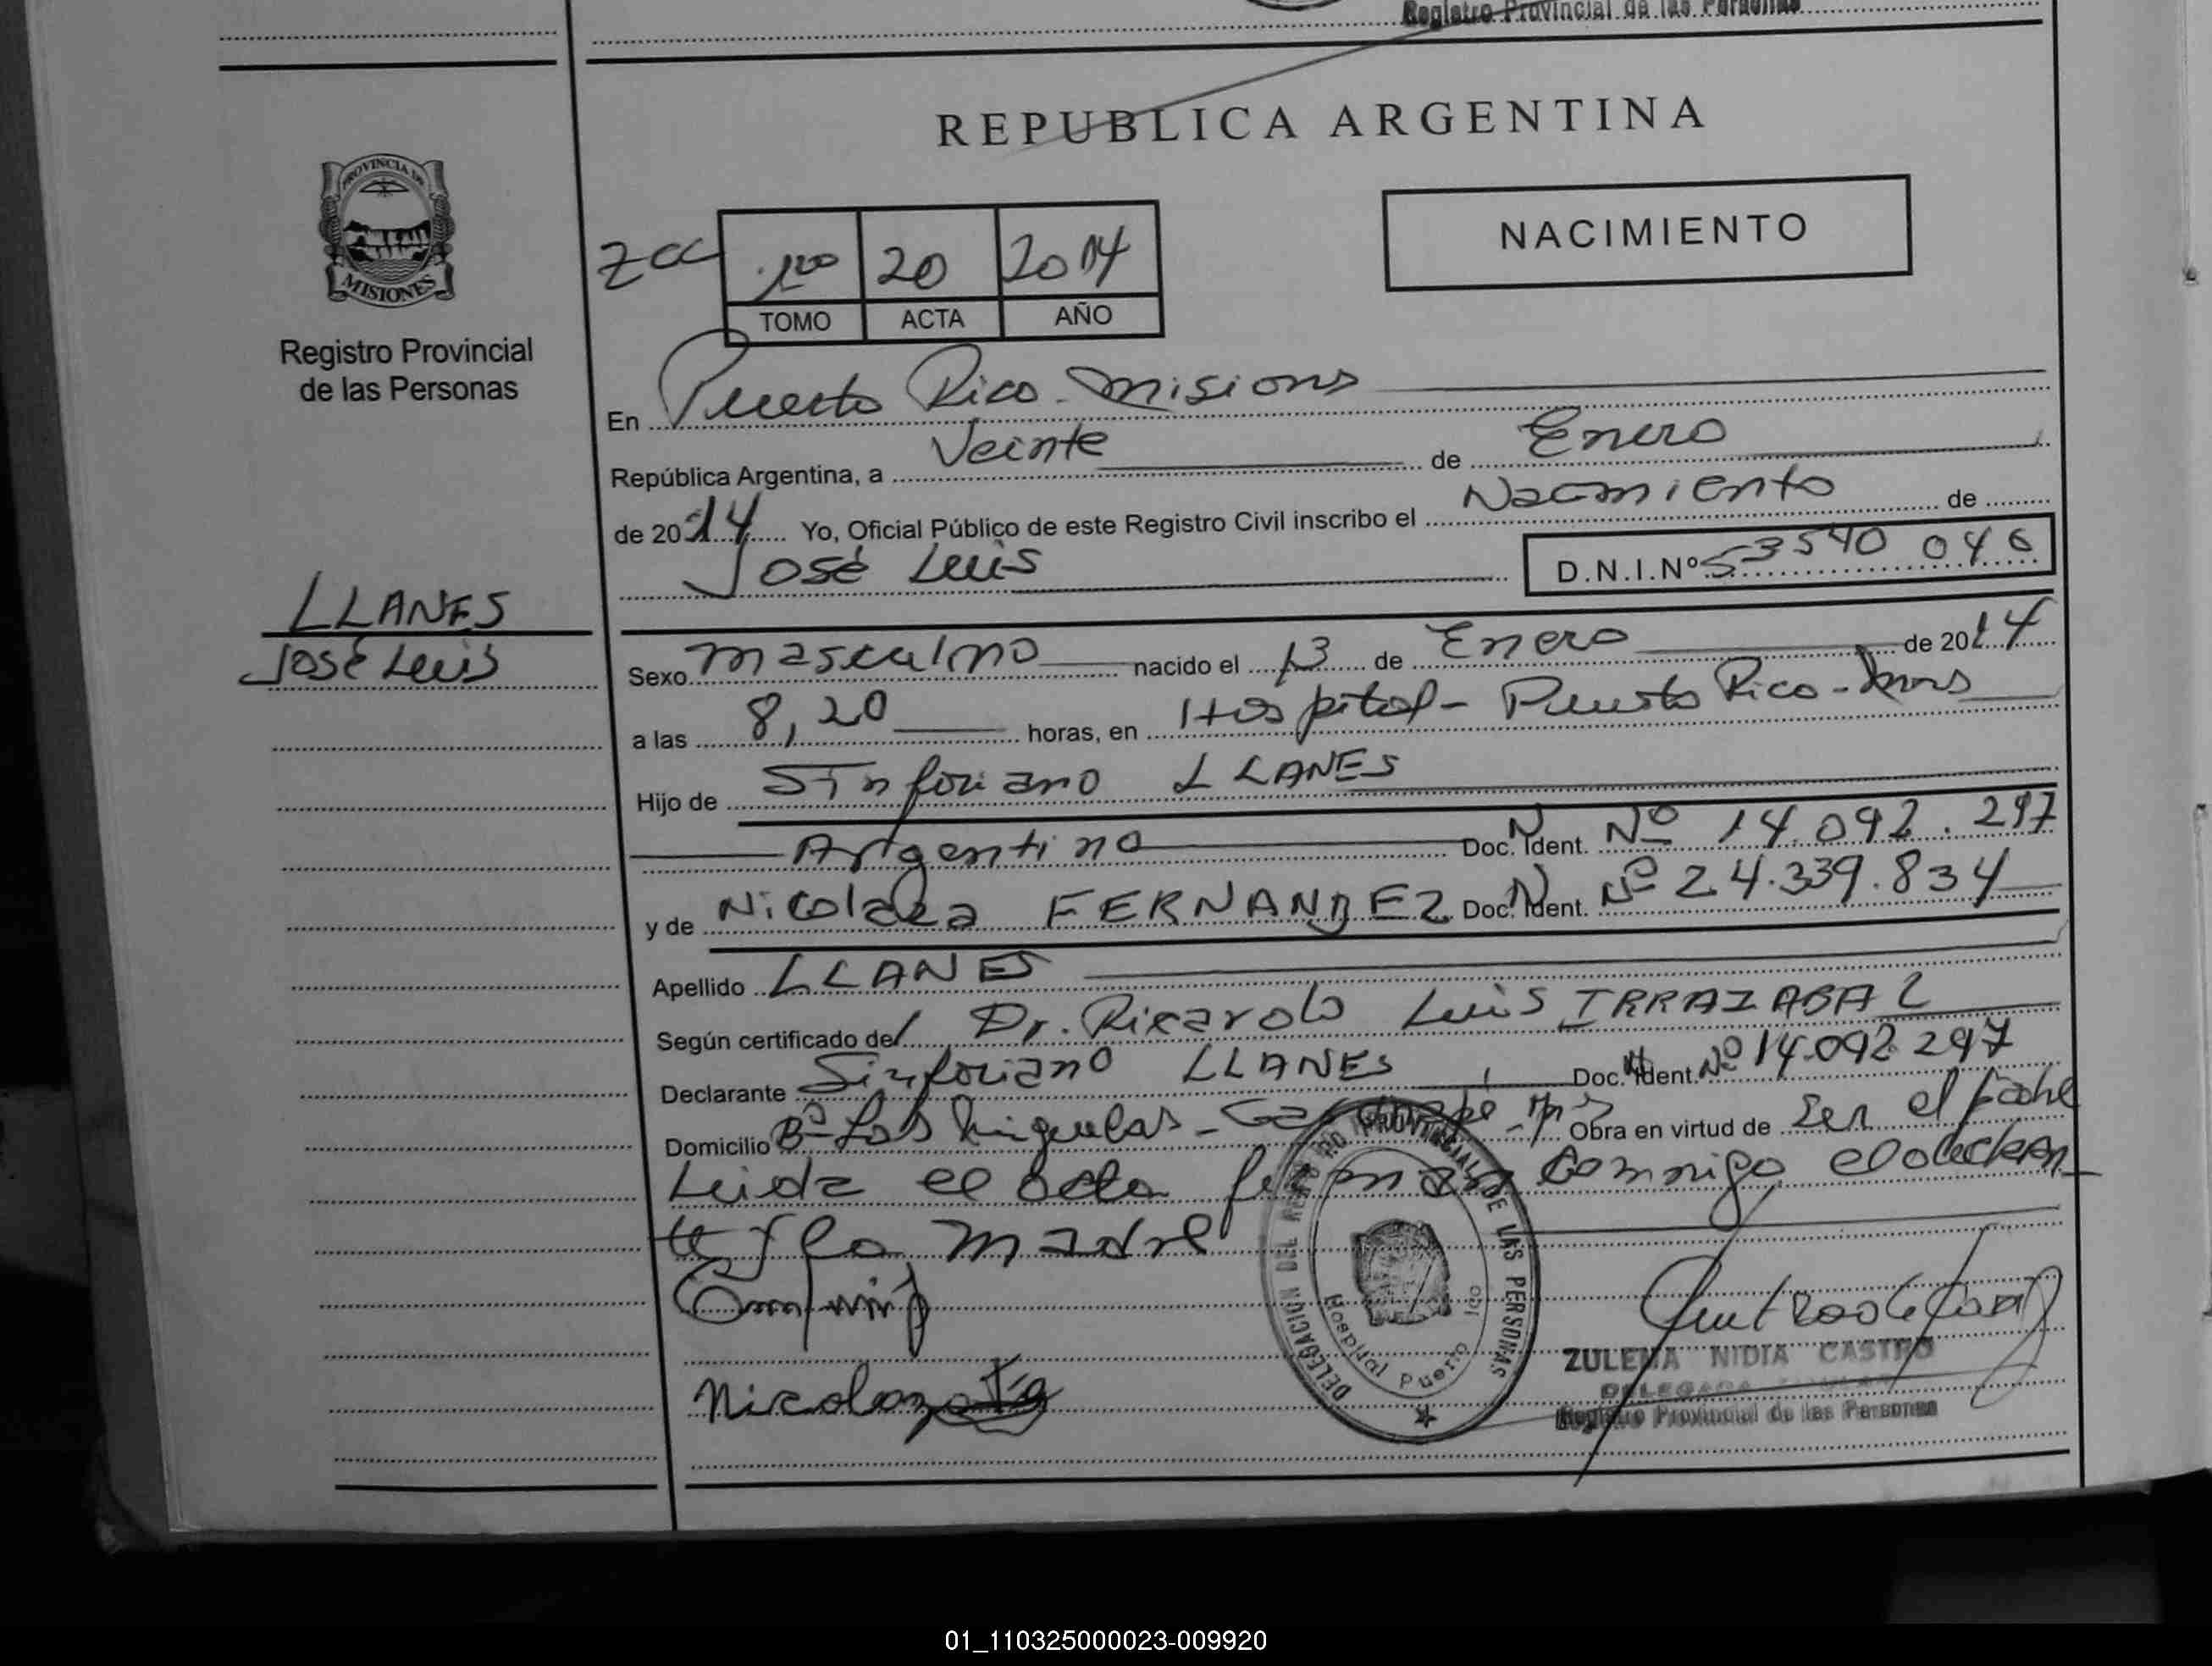 Registro Provincial de las Personas
REPUBLICA ARGENTINA
PROVINCIA DE
MISIONES
Registro Provincial
de las Personas
NACIMIENTO
20 2014
TOMO ACTA AÑO
En Puerto Rico - Misiones
República Argentina, a Veinte de Enero
de 2014 Yo, Oficial Público de este Registro Civil inscribo el Nacimiento de
José Luis D.N.I.Nº 53540 046
LLANES
José Luis
Sexo masculino nacido el 13 de Enero de 2014
a las 8,20 horas, en Hospital - Puerto Rico - Mnes
Hijo de Sinforiano LLANES
Argentino Doc. N. Ident. Nº 14.092.297
y de FERNANDEZ Doc. N. Ident. Nº 24.339.834
Apellido LLANES
Según certificado del Dr. Ricardo Luis IRRAZABAL
Declarante Sinforiano LLANES Doc. N. Ident. Nº 14.092.297
Domicilio Bº Los Obra en virtud de Ser el padre
Leida el acta firman conmigo el declaran_
te y la madre
DELEGACION DEL REGISTRO PROVINCIAL DE LAS PERSONAS
Hospital Puerto Rico
ZULEMA NIDIA CASTRO
DELEGADA TITULAR
Registro Provincial de las Personas
01_110325000023-009920